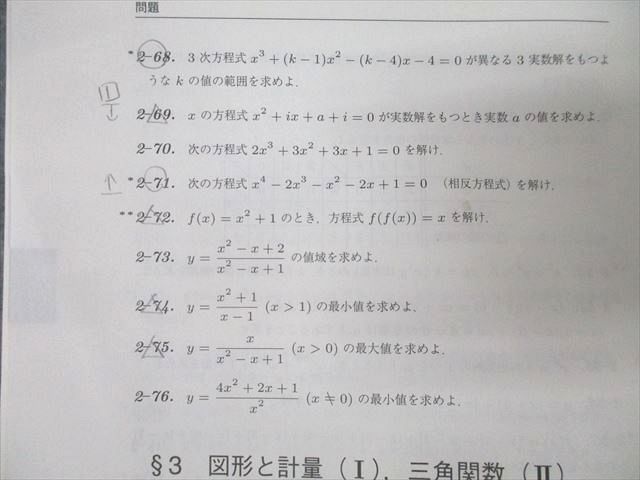 問題
*2-68. 3 次方程式 x³ + (k−1)x² − (k−4)x − 4 = 0 が異なる 3 実数解をもつよ
うな k の値の範囲を求めよ.
2-69. x の方程式 x² + ix + a + i = 0 が実数解をもつとき実数 a の値を求めよ.
2-70. 次の方程式 2x³ + 3x² + 3x + 1 = 0 を解け.
*2-71. 次の方程式 x⁴ − 2x³ − x² − 2x + 1 = 0 (相反方程式) を解け.
**2-72. f(x) = x² + 1 のとき, 方程式 f(f(x)) = x を解け.
2-73. y = (x² − x + 2)/(x² − x + 1) の値域を求めよ.
2-74. y = (x² + 1)/(x − 1) (x > 1) の最小値を求めよ.
2-75. y = x/(x² − x + 1) (x > 0) の最大値を求めよ.
2-76. y = (4x² + 2x + 1)/x² (x ≠ 0) の最小値を求めよ.
§3 図形と計量 (I), 三角関数 (II)